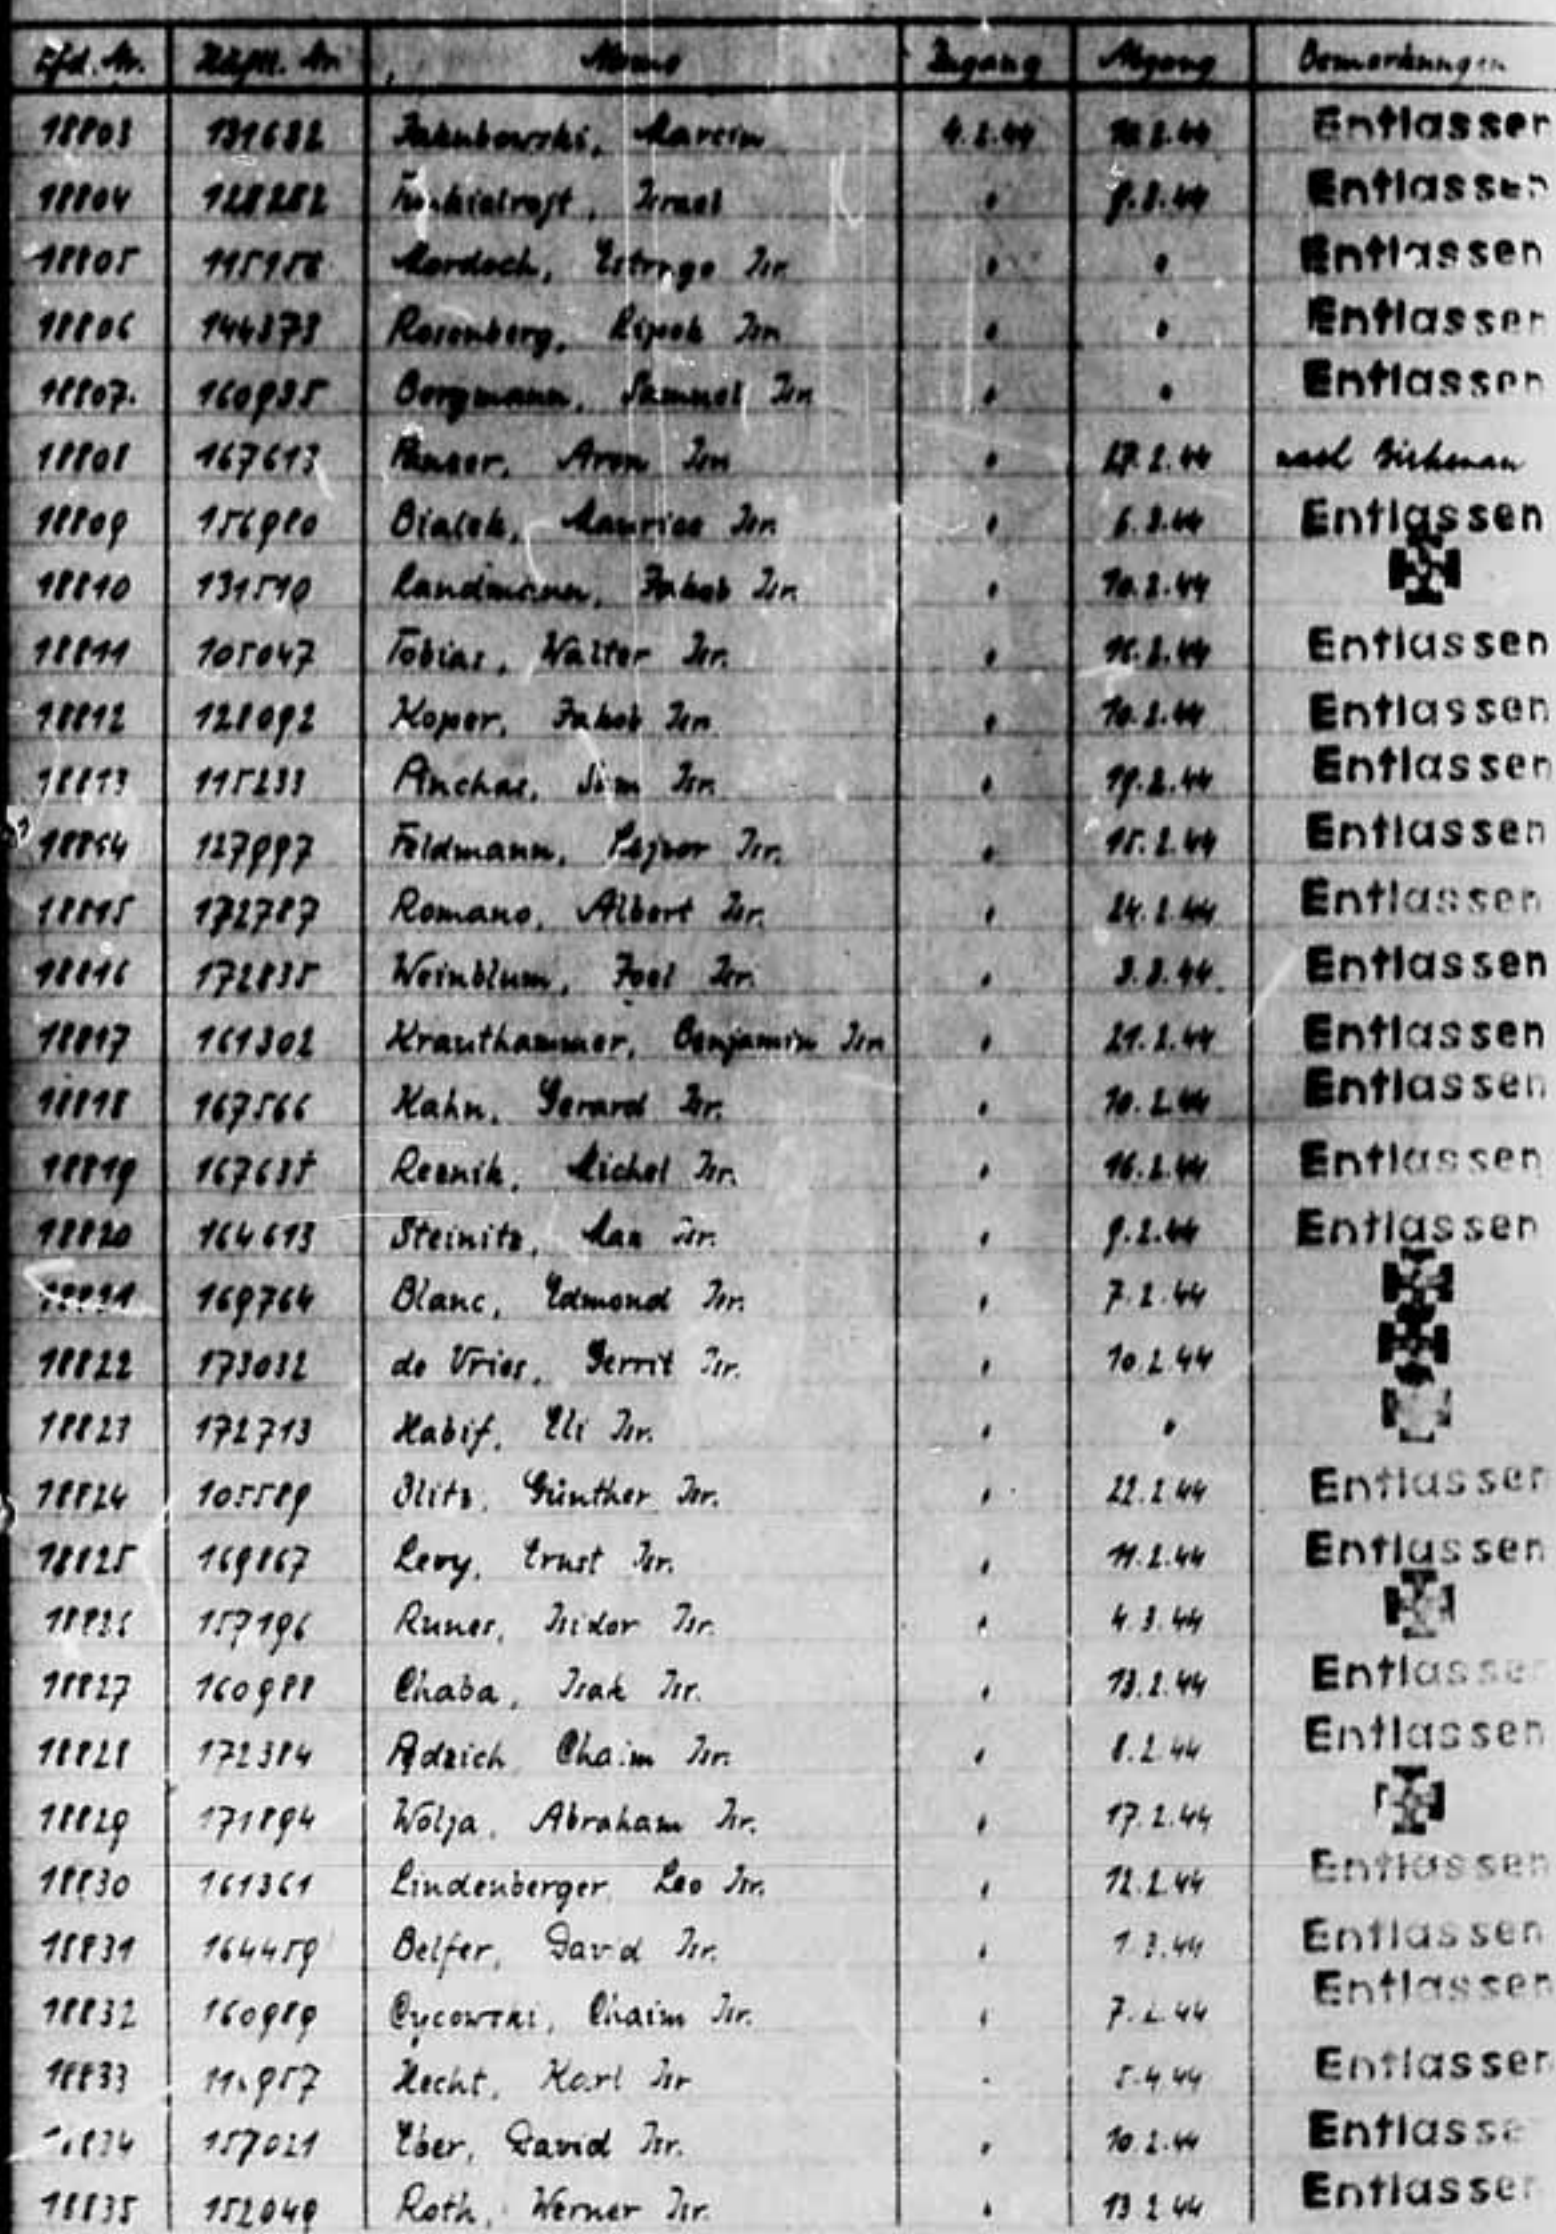 Lfd. Nr. Häftl. Nr. Name Zugang Abgang Bemerkungen
18803 131632 Jakubowski, Marcin 4.2.44 10.2.44 Entlassen
18804 128282 Israel " 9.2.44 Entlassen
18805 115158 Mordoch, Isr. " " Entlassen
18806 144373 Rosenberg, Isr. " " Entlassen
18807. 160935 Bergmann, Samuel Isr. " " Entlassen
18808 167613 Aron Isr. " 27.2.44 nach Birkenau
18809 156980 Bialek, Maurice Isr. " Entlassen
18810 131510 Landmann, Jakob Isr. " 10.2.44
18811 105047 Tobias, Walter Isr. " 16.2.44 Entlassen
18812 128092 Koper, Jakob Isr. " 10.2.44 Entlassen
18813 115233 Pinchas, Sim Isr. " 19.2.44 Entlassen
18814 127997 Feldmann, Lejzor Isr. " 15.2.44 Entlassen
18815 172787 Romano, Albert Isr. " 24.2.44 Entlassen
18816 172835 Weinblum, Joel Isr. " 3.3.44. Entlassen
18817 161302 Krauthammer, Benjamin Isr. " 21.2.44 Entlassen
18818 167566 Kahn, Gerard Isr. " 10.2.44 Entlassen
18819 167635 Reznik, Michel Isr. " 16.2.44 Entlassen
18820 164613 Steinitz, Max Isr. " 9.2.44 Entlassen
18821 169764 Blanc, Edmond Isr. " 7.2.44
18822 173032 de Vries, Gerrit Isr. " 10.2.44
18823 172713 Habif, Eli Isr. " "
18824 105589 Blitz, Günther Isr. " 22.2.44 Entlassen
18825 169867 Levy, Ernst Isr. " 11.2.44 Entlassen
18826 157196 Runer, Isidor Isr. " 4.3.44
18827 160988 Chaba, Isak Isr. " 13.2.44 Entlassen
18828 172384 Adzich, Chaim Isr. " 8.2.44 Entlassen
18829 171894 Wolja, Abraham Isr. " 17.2.44
18830 161361 Lindenberger Leo Isr. " 12.2.44 Entlassen
18831 164459 Belfer, David Isr. " 1.3.44 Entlassen
18832 160989 Cycowski, Chaim Isr. " 7.2.44 Entlassen
18833 Hecht, Karl Isr " 5.4.44 Entlassen
18834 157021 Eber, David Isr. " 10.2.44 Entlassen
18835 152049 Roth, Werner Isr. " 13.2.44 Entlassen